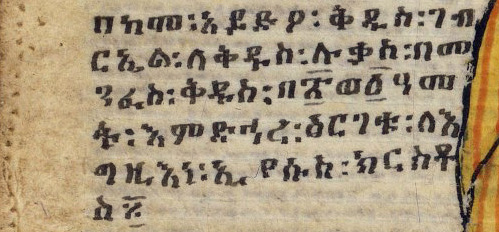 በከመ፡አይድዖ፡ቅዱስ፡ገብ
ርኤል፡ለቅዱስ፡ሉቃስ፡በመ
ንፈስ፡ቅዱስ፡በ፳ወ፩ዓመ
ት፡እምድኅረ፡ዕርገቱ፡ለእ
ግዚእነ፡ኢየሱስ፡ክርስቶ
ስ